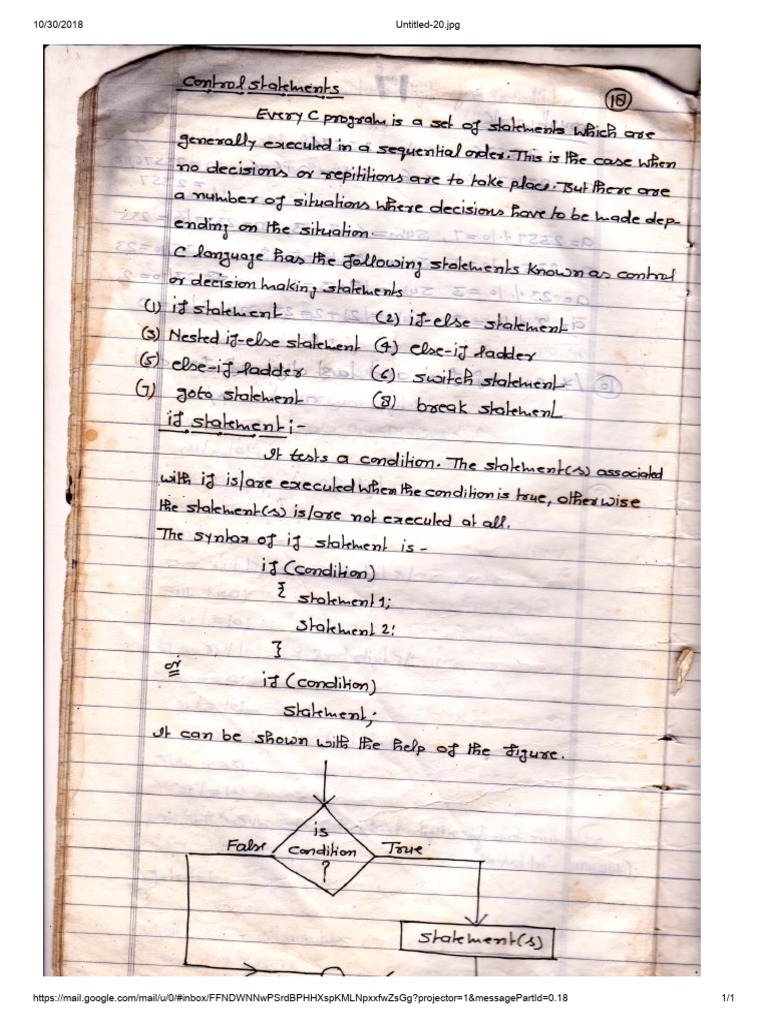 10/30/2018 Untitled-20.jpg
Control statements 18
Every C program is a set of statements which are
generally executed in a sequential order. This is the case when
no decisions or repititions are to take place. But there are
a number of situations where decisions have to be made dep-
ending on the situation.
C language has the following statements known as control
or decision making statements
(1) if statement (2) if-else statement
(3) Nested if-else statement (4) else-if ladder
(5) else-if ladder (6) switch statement
(7) goto statement (8) break statement
if statement :-
It tests a condition. The statement(s) associated
with if is/are executed when the condition is true, otherwise
the statement(s) is/are not executed at all.
The syntax of if statement is -
if (condition)
{ statement 1;
statement 2;
}
or if (condition)
statement;
It can be shown with the help of the figure.
is
False condition True
?
statement(s)
https://mail.google.com/mail/u/0/#inbox/FFNDWNNwPSrdBPHHXspKMLNpxxfwZsGg?projector=1&messagePartId=0.18 1/1